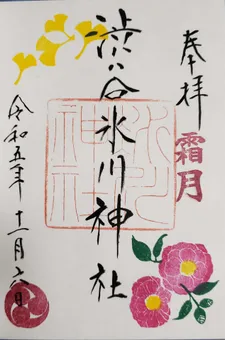 奉拝
霜月
渋谷氷川神社
氷川神社
令和五年十一月六日